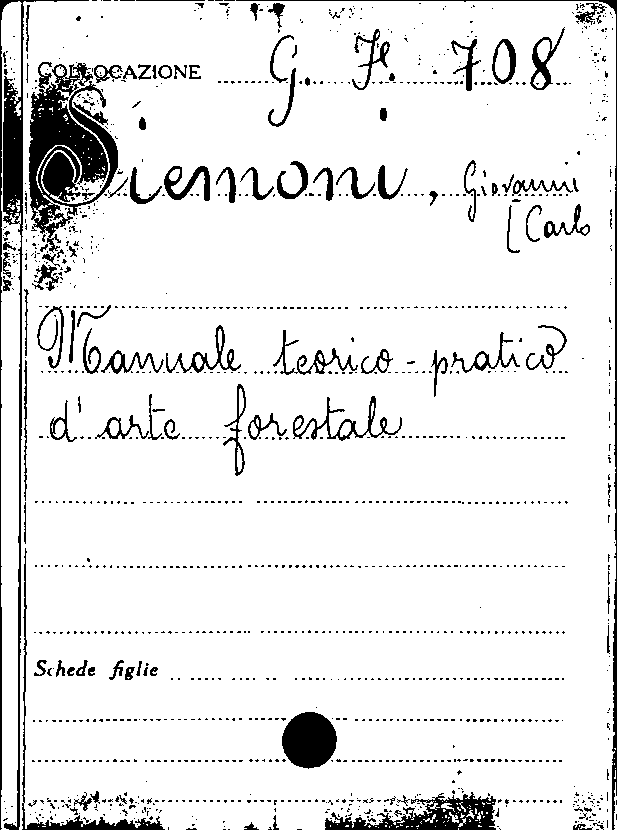 COLLOCAZIONE G. F. 708
Siemoni, Giovanni
[Carlo
Manuale teorico-pratico
d'arte forestale
Schede figlie